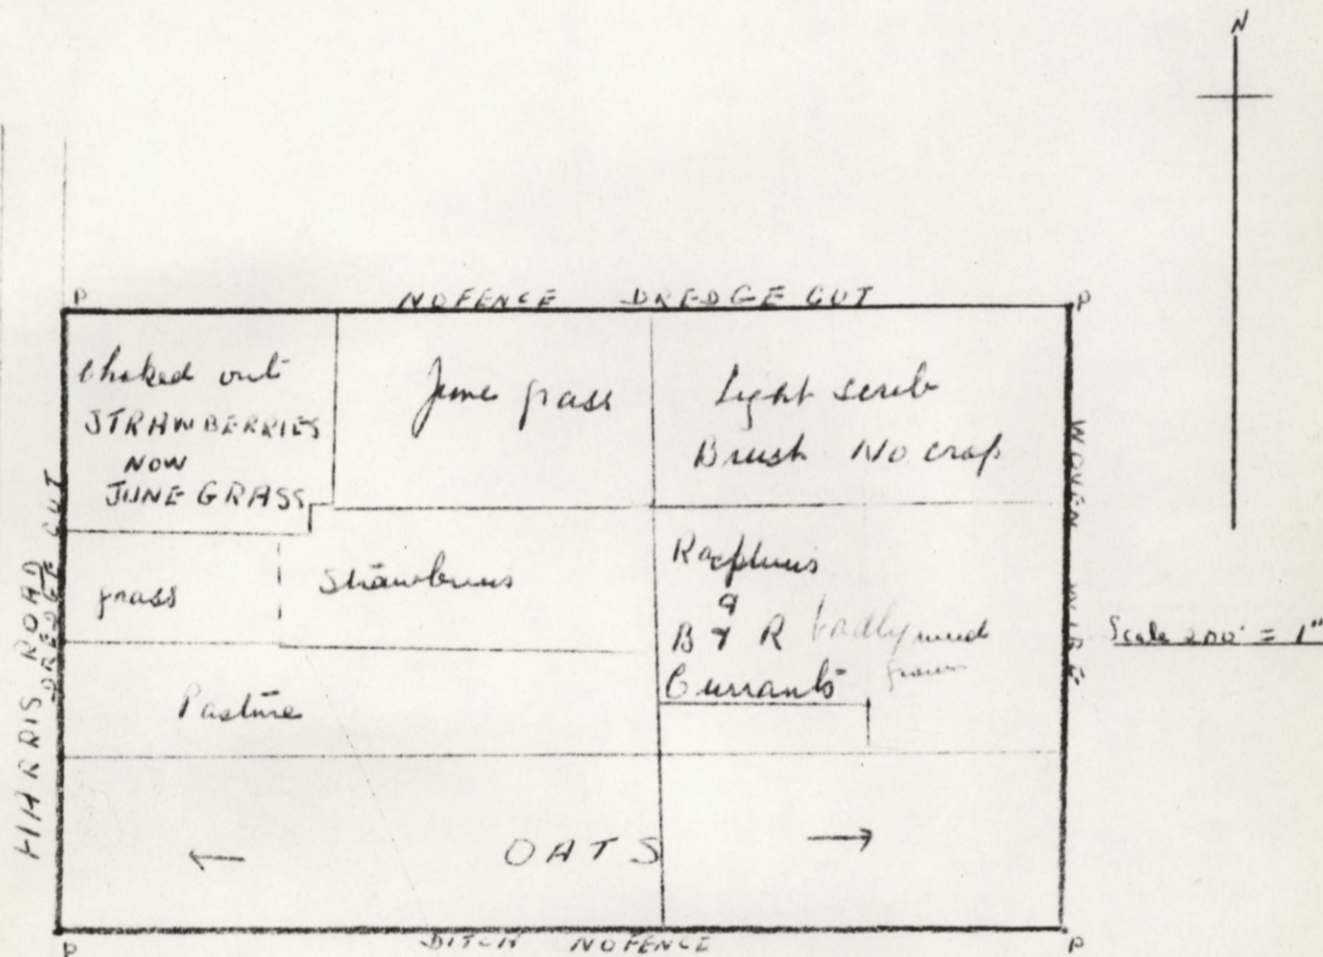 N
P
NO FENCE DREDGE CUT
P
Choked out
STRAWBERRIES
NOW
JUNE GRASS
June grass
Light scrub
Brush No crop
WOVEN WIRE
HARRIS ROAD
DREDGE CUT
grass
Strawberries
Raspberries
&
B & R badly weed
grown
Currants
Scale 200' = 1"
Pasture
← OATS →
P
DITCH NO FENCE
P